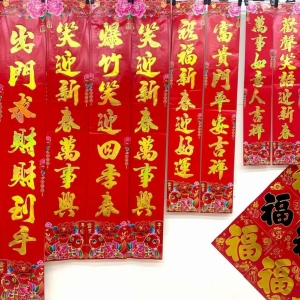 出門求財財到手
笑迎新春萬事興
爆竹笑迎四季春
笑迎新春萬事興
祝福新春迎好運
富貴門平安吉祥
萬事如意人吉祥
歡聲笑語迎新春
福
福
福
福